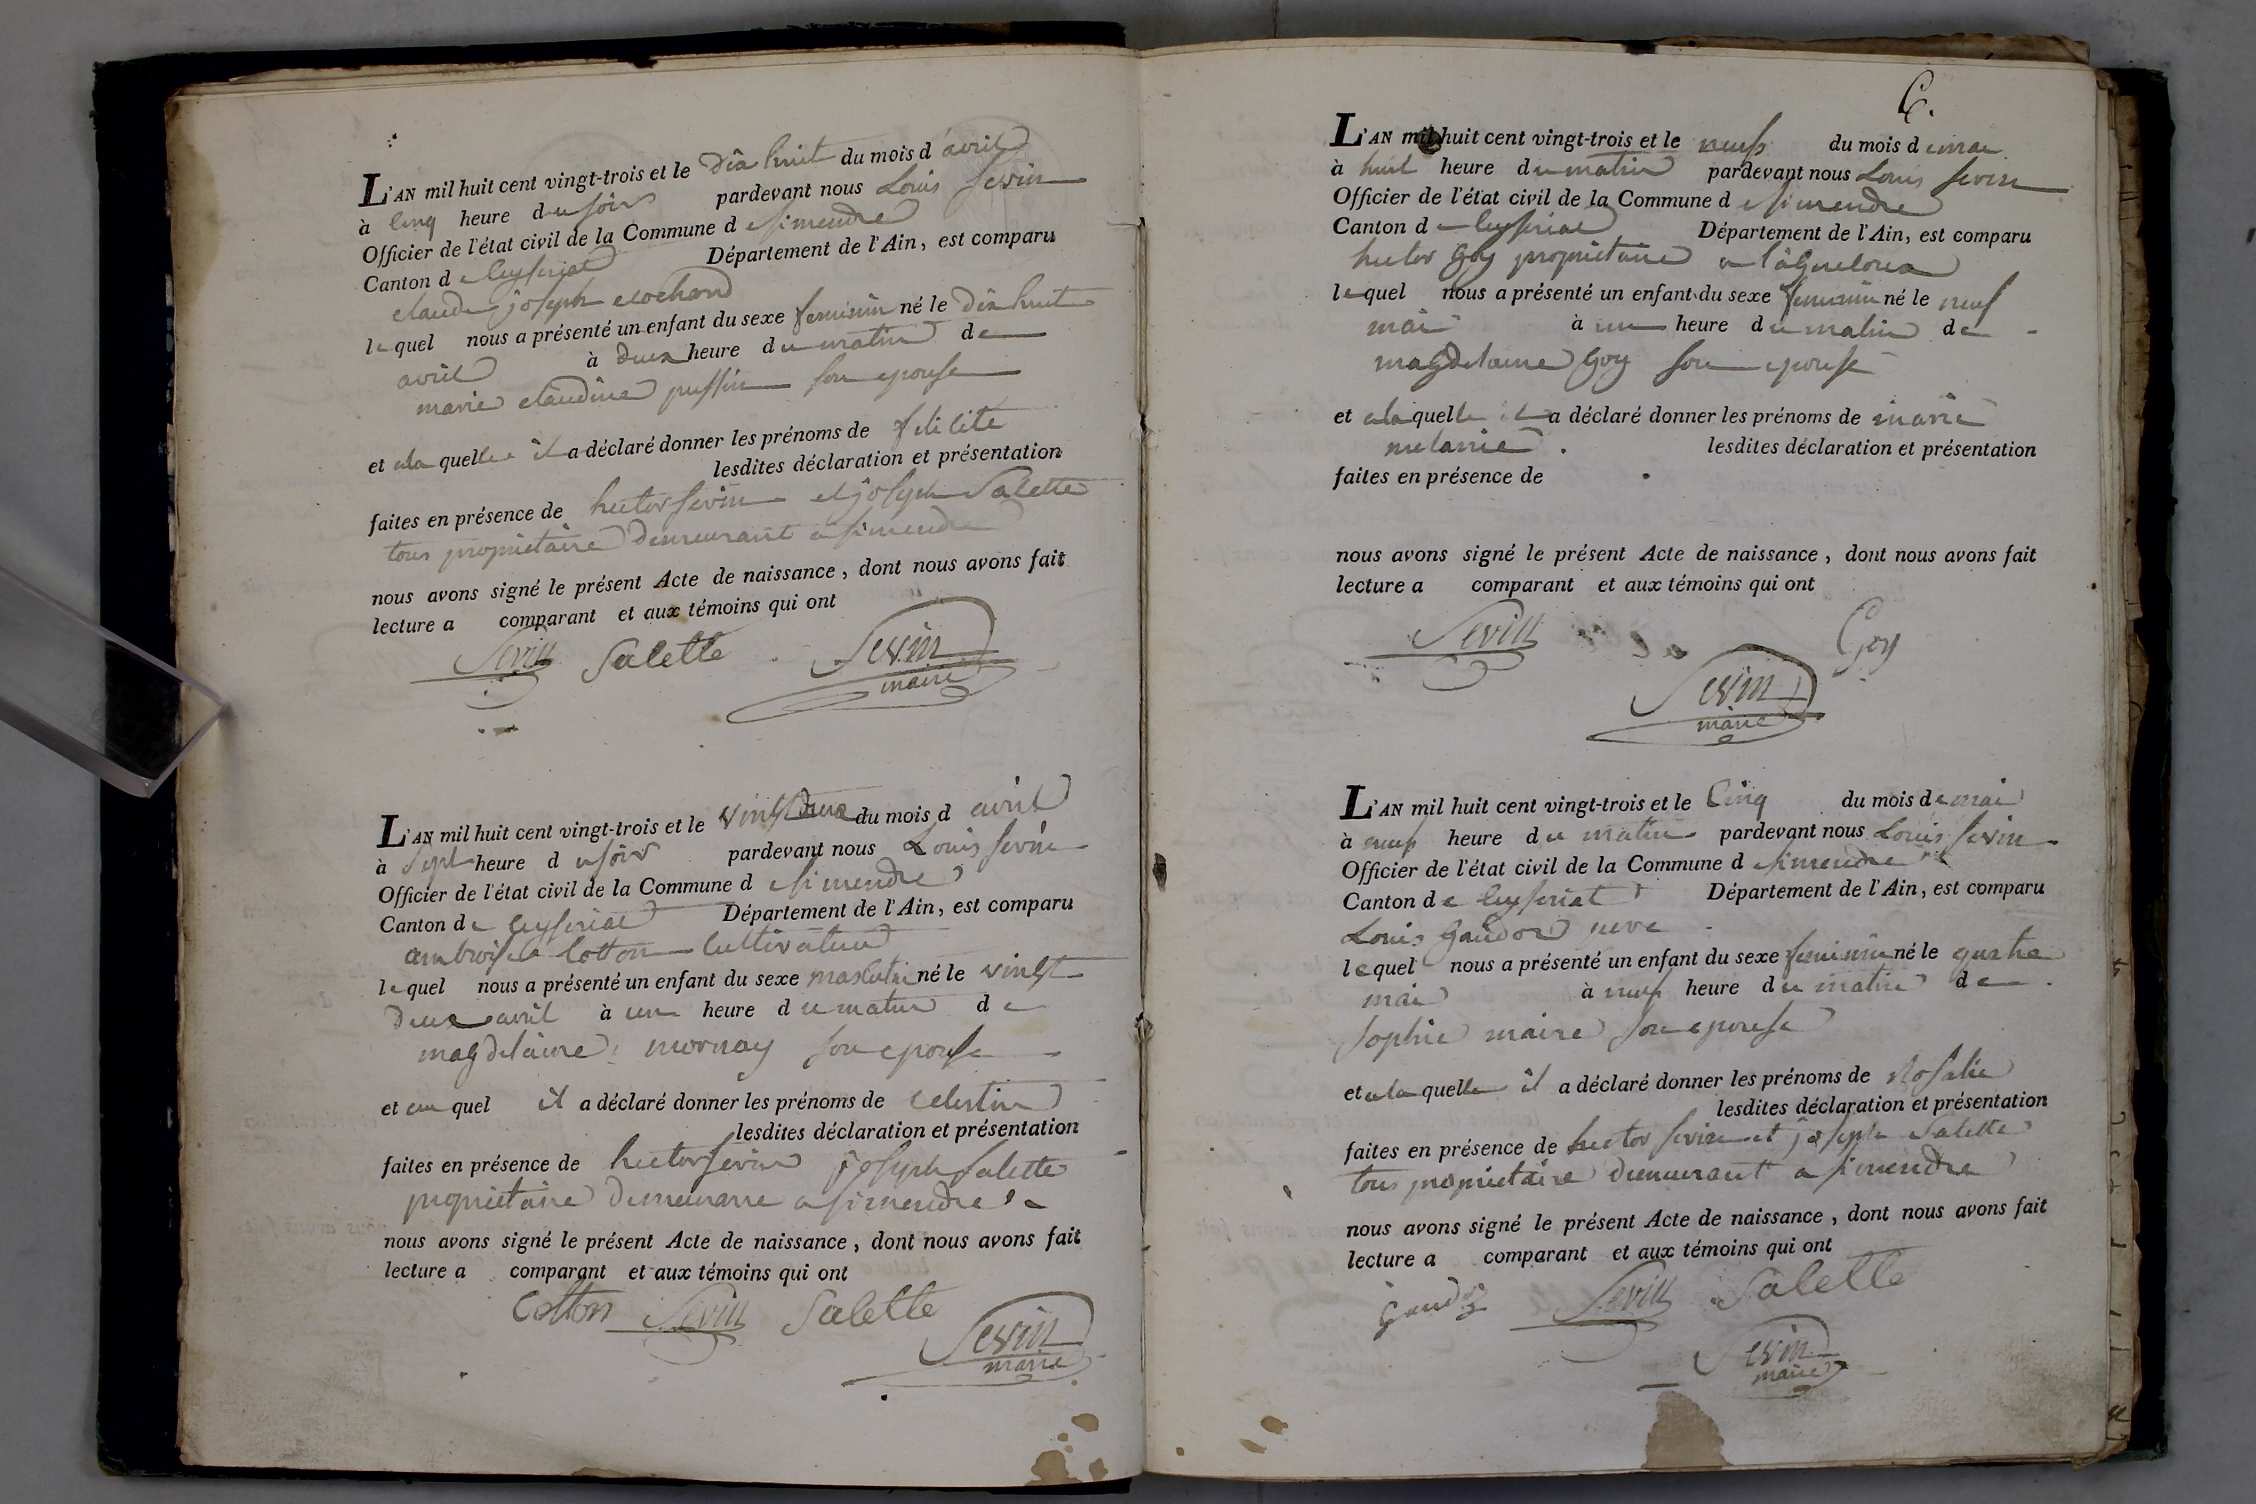 L'AN mil huit cent vingt-trois et le dix huit du mois d avril
à cinq heure du soir pardevant nous Louis Sevin
Officier de l'état civil de la Commune de simendre
Canton de Ceyseriat Département de l'Ain, est comparu
claude joseph
lequel nous a présenté un enfant du sexe feminin né le dix huit
avril à deux heure du matin de
marie claudine puffin son epouse
et a la quelle il a déclaré donner les prénoms de felicite
lesdites déclaration et présentation
faites en présence de hector sevin et joseph Salette
tous propriétaire demeurant a simendre
nous avons signé le présent Acte de naissance, dont nous avons fait
lecture a comparant et aux témoins qui ont
Sevin Salette Sevin
maire
L'AN mil huit cent vingt-trois et le vingt deux du mois d avril
à sept heure du soir pardevant nous Louis sevin
Officier de l'état civil de la Commune de simendre
Canton de Ceyseriat Département de l'Ain, est comparu
ambroise Cotton Cultivateur
lequel nous a présenté un enfant du sexe masculin né le vingt
deux avril à un heure du matin de
magdelaine mornay son epouse
et au quel il a déclaré donner les prénoms de celestin
lesdites déclaration et présentation
faites en présence de hector sevin joseph salette
propriétaire demeurant a simendre
nous avons signé le présent Acte de naissance, dont nous avons fait
lecture a comparant et aux témoins qui ont
Cotton Sevin Salette
Sevin
maire
L'AN mil huit cent vingt-trois et le neuf du mois de mai
à huit heure du matin pardevant nous Louis sevin
Officier de l'état civil de la Commune de simendre
Canton de Ceyseriat Département de l'Ain, est comparu
hector Goy propriétaire a
lequel nous a présenté un enfant du sexe feminin né le neuf
mai à un heure du matin de
magdelaine Goy son epouse
et a la quelle il a déclaré donner les prénoms de marie
melanie lesdites déclaration et présentation
faites en présence de
nous avons signé le présent Acte de naissance, dont nous avons fait
lecture a comparant et aux témoins qui ont
Sevin Goy
Sevin
maire
L'AN mil huit cent vingt-trois et le Cinq du mois de mai
à neuf heure du matin pardevant nous Louis sevin
Officier de l'état civil de la Commune de simendre
Canton de Ceyseriat Département de l'Ain, est comparu
Louis
lequel nous a présenté un enfant du sexe feminin né le quatre
mai à neuf heure du matin de
sophie maire son epouse
et a la quelle il a déclaré donner les prénoms de Rosalie
lesdites déclaration et présentation
faites en présence de hector sevin et joseph salette
tous propriétaire demeurant a simendre
nous avons signé le présent Acte de naissance, dont nous avons fait
lecture a comparant et aux témoins qui ont
Sevin Salette
Sevin
maire